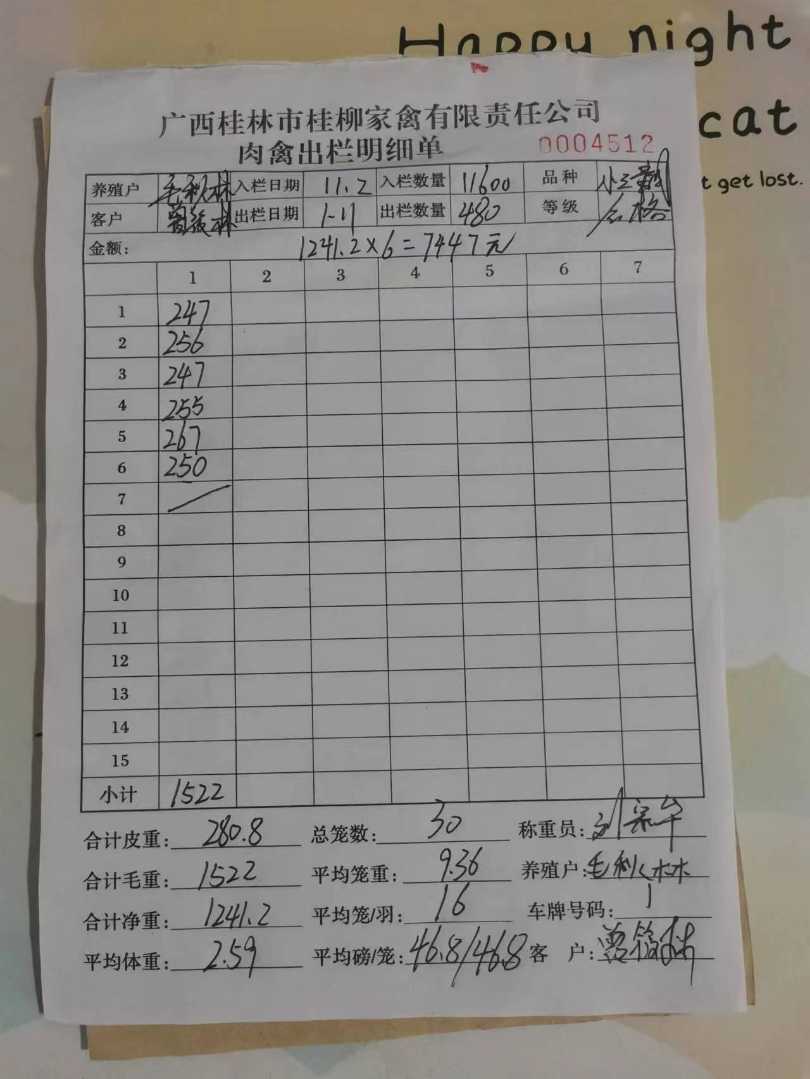 Happy night
cat
t get lost.
广西桂林市桂柳家禽有限责任公司
肉禽出栏明细单 0004512
养殖户 毛利林 入栏日期 11.2 入栏数量 11600 品种
客户 入栏日期 1-11 出栏数量 480 等级 合格
金额: 1241.2×6=7447元
1 2 3 4 5 6 7
1 247
2 256
3 247
4 255
5 267
6 250
7
8
9
10
11
12
13
14
15
小计 1522
合计皮重: 280.8 总笼数: 30 称重员:
合计毛重: 1522 平均笼重: 9.36 养殖户: 毛利林
合计净重: 1241.2 平均笼/羽: 16 车牌号码: 1
平均体重: 2.59 平均磅/笼: 46.8/46.8 客 户: